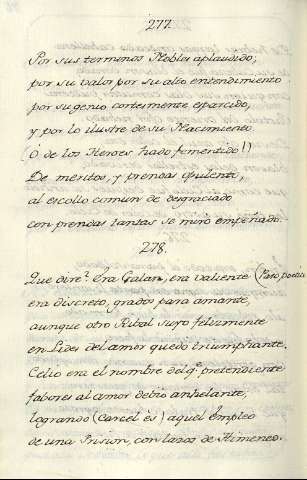 277.
Por sus terminos Nobles aplaudido;
por su valor por su alto entendimiento
por su genio cortesmente esparcido,
y por lo ilustre de su Nacimiento
(ó de los Heroes hado fementido!)
De meritos, y prendas opulento,
al escollo comun de desgraciado
con prendas tantas se miró empeñado.
278.
Que dire? Era Galan, era valiente
era discreto, grados para amante,
aunque otro Ribal suyo felizmente
en Lides del amor quedó triumphante,
Celio era el nombre del q.e pretendiente
fabores al amor debió anhelante,
logrando (Carcel és) aquel Empleo
de una Prision, con lazos de Himeneo.